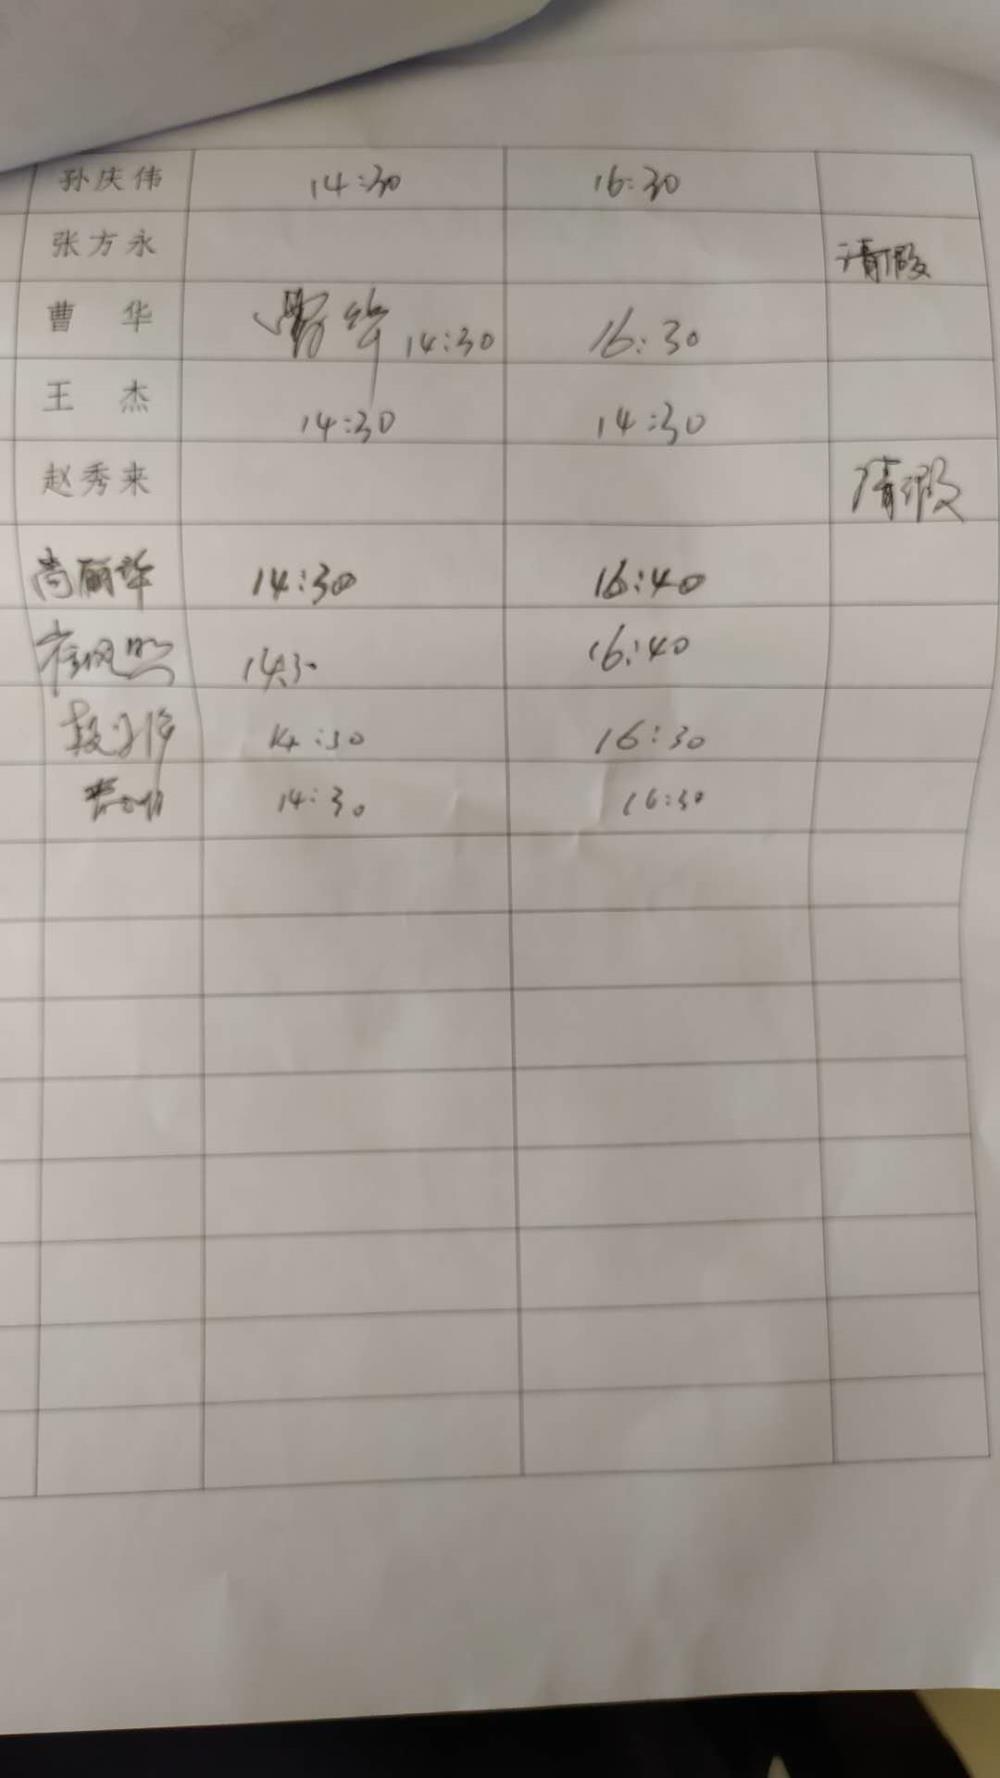 孙庆伟 14:30 16:30
张方永 请假
曹 华 曹华 14:30 16:30
王 杰 14:30 14:30
赵秀来 请假
尚丽华 14:30 16:40
14:30 16:40
14:30 16:30
14:30 16:30